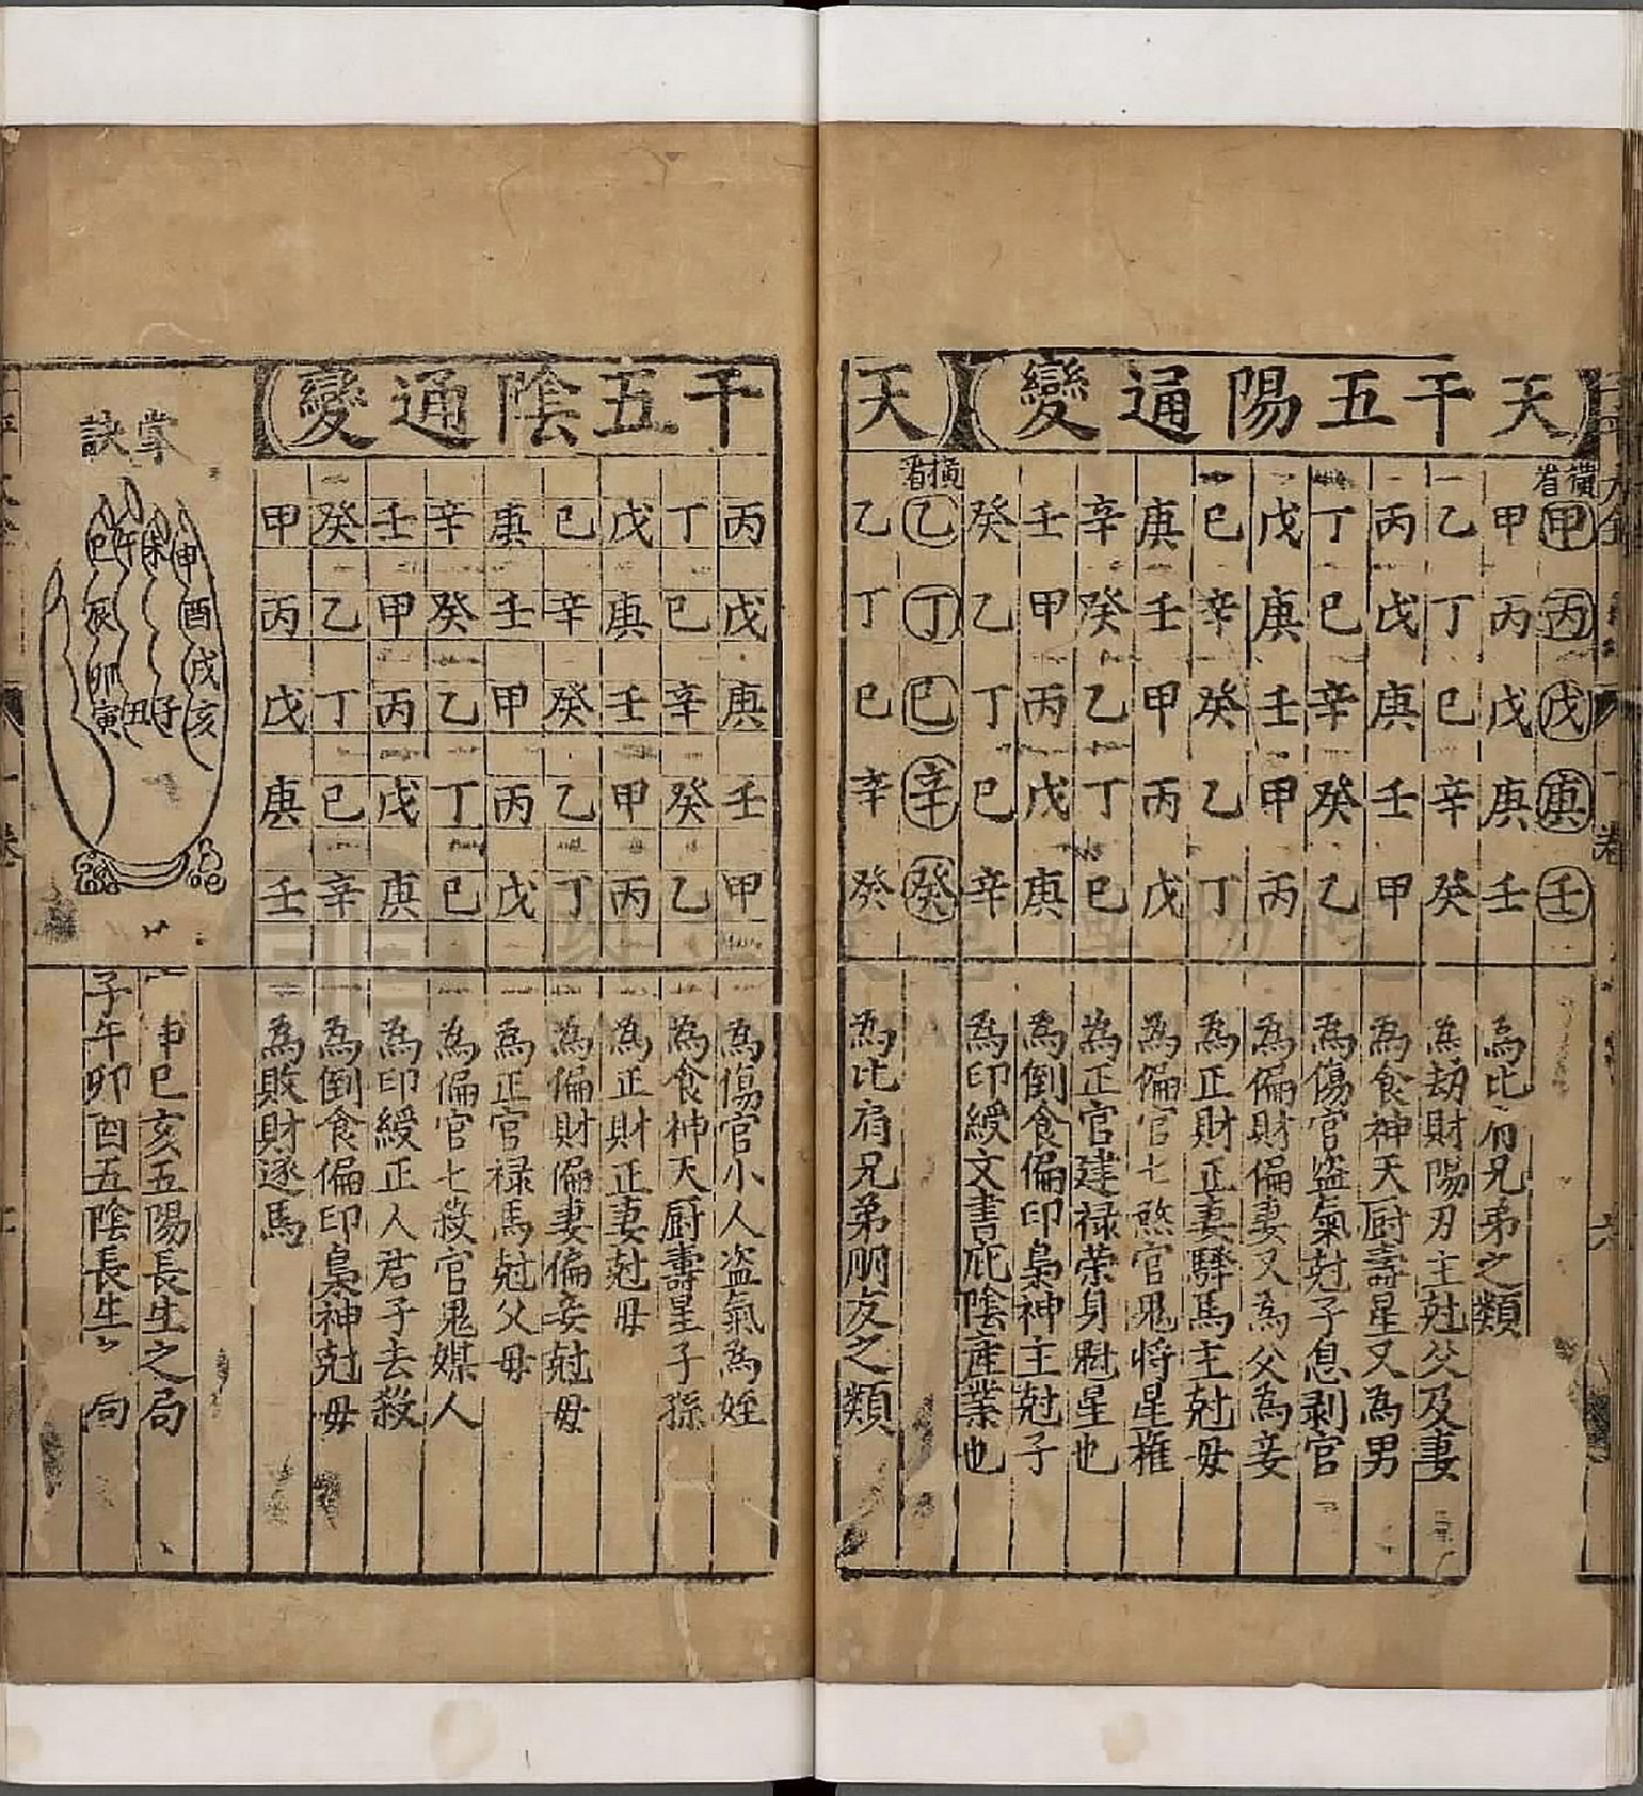 天干五陽通變
橫看
甲丙戊庚壬
甲丙戊庚壬 為比肩兄弟之類
乙丁己辛癸 為劫財陽刃主尅父及妻
丙戊庚壬甲 為食神天厨壽星又為男
丁己辛癸乙 為傷官盗氣尅子息剥官
戊庚壬甲丙 為偏財偏妻又為父為妾
己辛癸乙丁 為正財正妻驛馬主尅母
庚壬甲丙戊 為偏官七煞官鬼將星權
辛癸乙丁己 為正官建禄荣身財星也
壬甲丙戊庚 為倒食偏印梟神主尅子
癸乙丁己辛 為印綬文書庇陰產業也
天干五陰通變
橫看
乙丁己辛癸
乙丁己辛癸 為比肩兄弟朋友之類
丙戊庚壬甲 為傷官小人盗氣為姪
丁己辛癸乙 為食神天厨壽星子孫
戊庚壬甲丙 為正財正妻尅母
己辛癸乙丁 為偏財偏妻偏妾尅母
庚壬甲丙戊 為正官禄馬尅父母
辛癸乙丁己 為偏官七殺官鬼媒人
壬甲丙戊庚 為印綬正人君子去殺
癸乙丁己辛 為倒食偏印梟神尅母
甲丙戊庚壬 為敗財逐馬
掌訣
申酉戌亥
未
子
午
丑
巳辰卯寅
申巳亥五陽長生之局
子午卯酉五陰長生 局